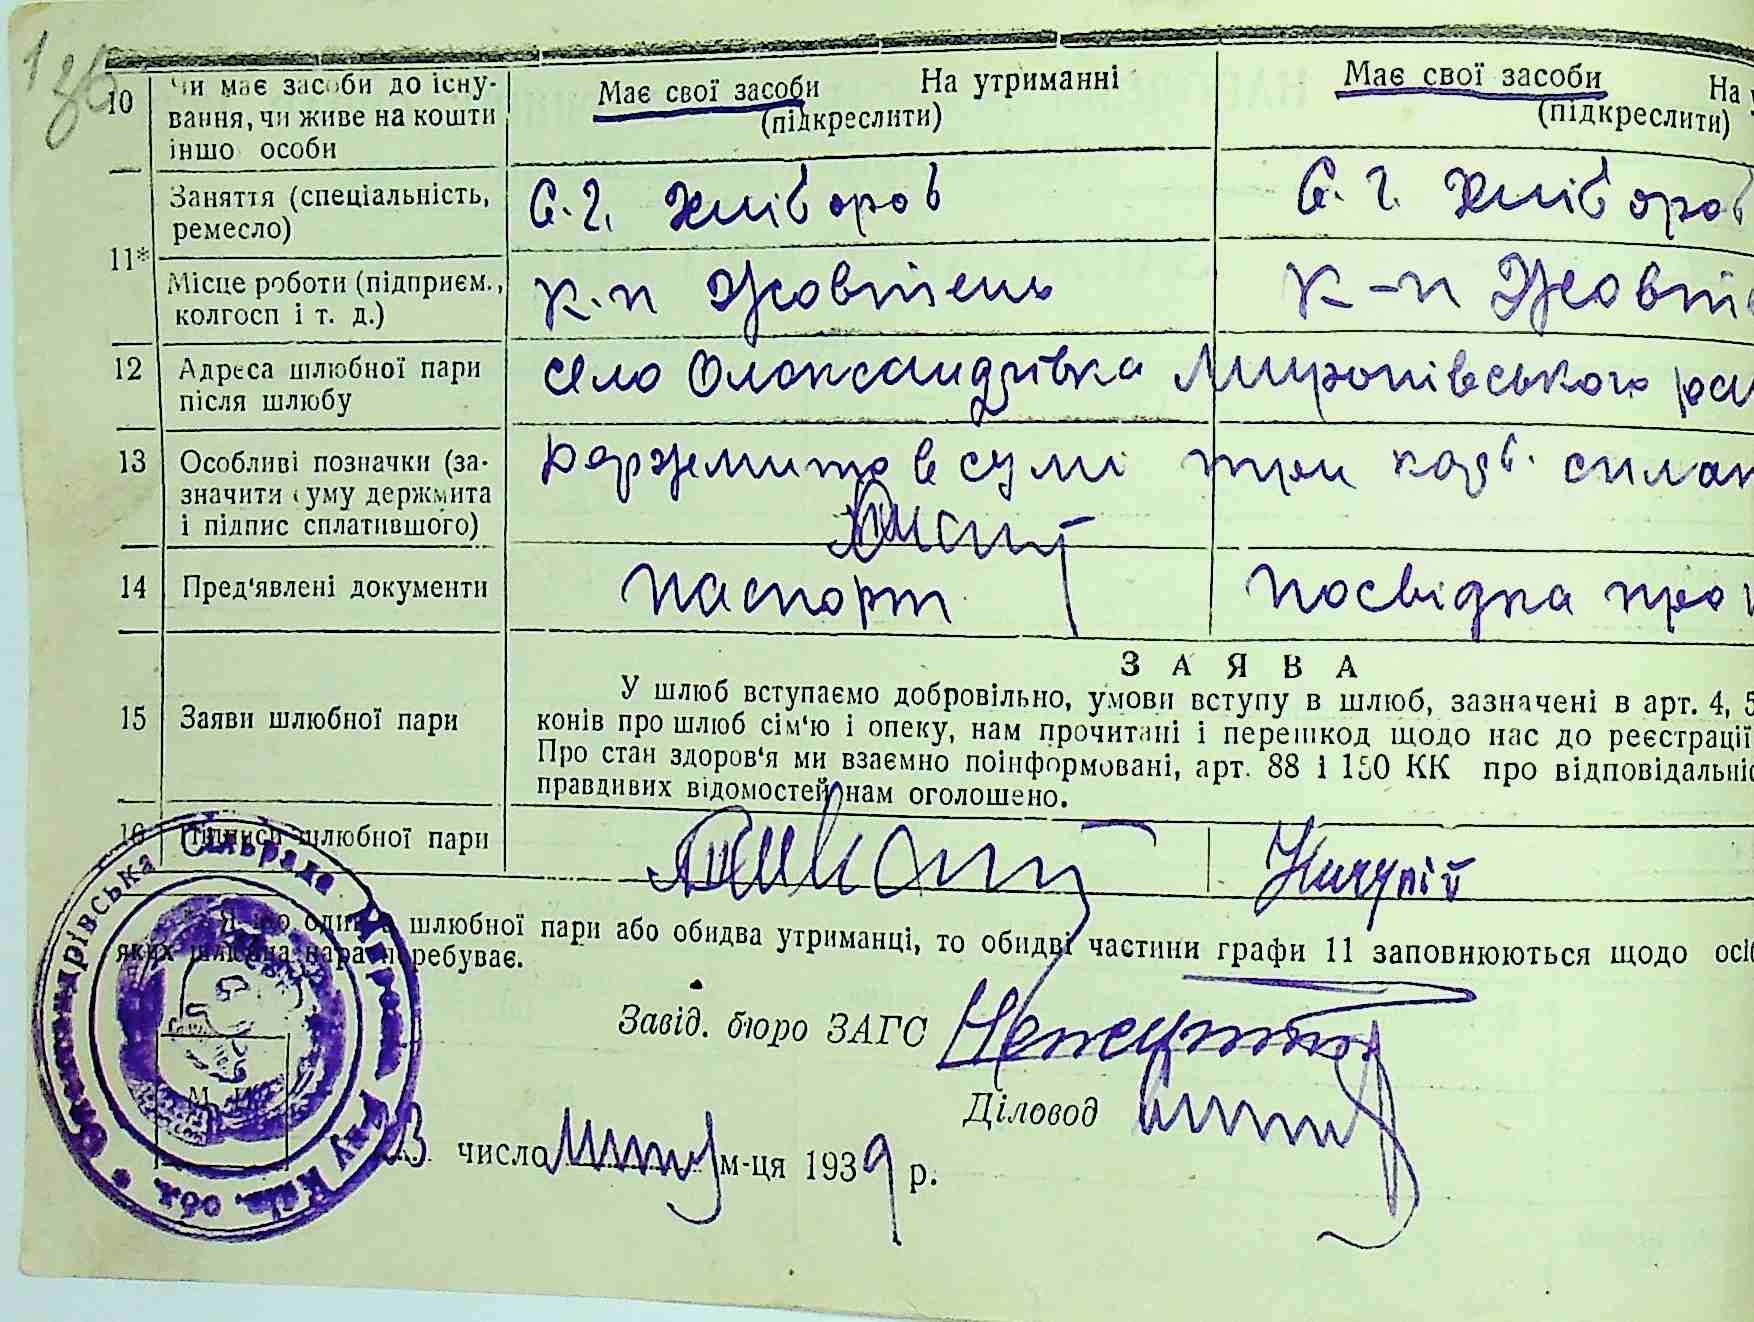 10 Чи має засоби до існу-
вання, чи живе на кошти
іншо особи
Має свої засоби На утриманні
(підкреслити)
Має свої засоби На у
(підкреслити)
11*
Заняття (спеціальність,
ремесло)
С. г. хлібороб
С. г. хлібороб
Місце роботи (підприєм.,
колгосп і т. д.)
К-п Жовтень
К-п Жовте
12 Адреса шлюбної пари
після шлюбу
село Олександрівка Миронівського рай
13 Особливі позначки (за-
значити суму держмита
і підпис сплатившого)
Держмито в сумі три карб. сплат
14 Пред'явлені документи
паспорт
посвідка про
15 Заяви шлюбної пари
ЗАЯВА
У шлюб вступаємо добровільно, умови вступу в шлюб, зазначені в арт. 4, 5
конів про шлюб сім'ю і опеку, нам прочитані і перешкод щодо нас до реєстрації
Про стан здоров'я ми взаємно поінформовані, арт. 88 і 150 КК про відповідальніс
правдивих відомостей нам оголошено.
16 Підписи шлюбної пари
Якщо один з шлюбної пари або обидва утриманці, то обидві частини графи 11 заповнюються щодо осіб
яких шлюбна пара перебуває.
Завід. бюро ЗАГС
Діловод
М. П.
число м-ця 1939 р.
Олександрівська Сільрада
Київ. обл.